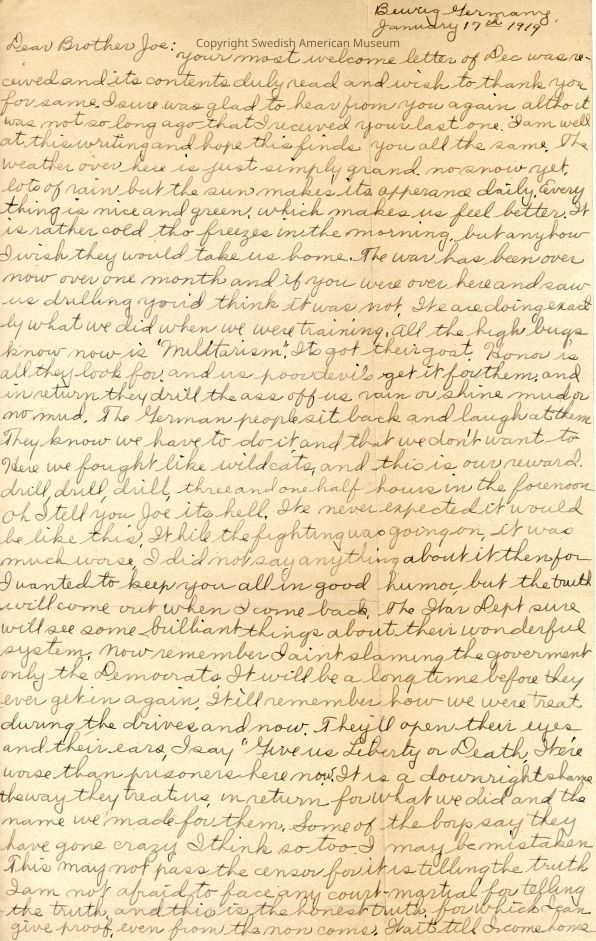 Beurig Germany.
January 17th 1919
Copyright Swedish American Museum
Dear Brother Joe:
Your most welcome letter of Dec was re-
ceived and its contents duly read and wish to thank you
for same. I sure was glad to hear from you again altho it
was not so long ago that I received your last one. I am well
at this writing and hope this finds you all the same. The
weather over here is just simply grand. no snow yet,
lots of rain but the sun makes its apperance daily. Every
thing is nice and green, which makes us feel better. It
is rather cold tho freezes in the morning, but anyhow
I wish they would take us home. The war has been over
now over one month and if you were over here and saw
us drilling you'd think it was not. We are doing exact
ly what we did when we were training. All the high bugs
know now is "Militarism". Its got their goat. Honor is
all they look for and us poor devils get it for them, and
in return they drill the ass off us, rain or shine mud or
no mud. The German people sit back and laugh at them
They know we have to do it and that we don't want to
Here we fought like wildcats, and this is our reward.
drill, drill, drill, three and one half hours in the forenoon
Oh I tell you Joe its hell. We never expected it would
be like this. While the fighting was going on, it was
much worse, I did not say anything about it then for
I wanted to keep you all in good humor, but the truth
will come out when I come back. The War Dept sure
will see some brilliant things about their wonderful
system. Now remember I aint slaming the goverment
only the Democrats. It will be a long time before they
ever get in again. We'll remember how we were treat
during the drives and now. They'll open their eyes
and their ears, I say "Give us Liberty or Death, We're
worse than prisoners here now. It is a downright shame
the way they treat us, in return for what we did and the
name we made for them. Some of the boys say they
have gone crazy I think so too I may be mistaken
This may not pass the censor for it is telling the truth
I am not afraid to face any court-martial for telling
the truth, and this is the honest truth, for which I can
give proof, even from the non coms. Wait till I come home